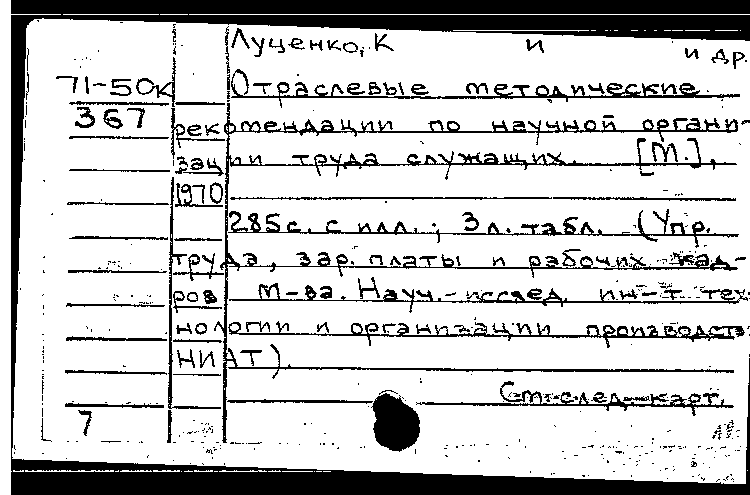 Луценко, К и и др.
71-50к Отраслевые методические
367 рекомендации по научной органи-
зации труда служащих. [М.],
1970
285с. с илл.; 3 л. табл. (Упр.
труда, зар. платы и рабочих кад-
ров м-ва. Науч.-исслед. ин-т тех-
нологии и организации производств
НИАТ).
См. след. карт.
7